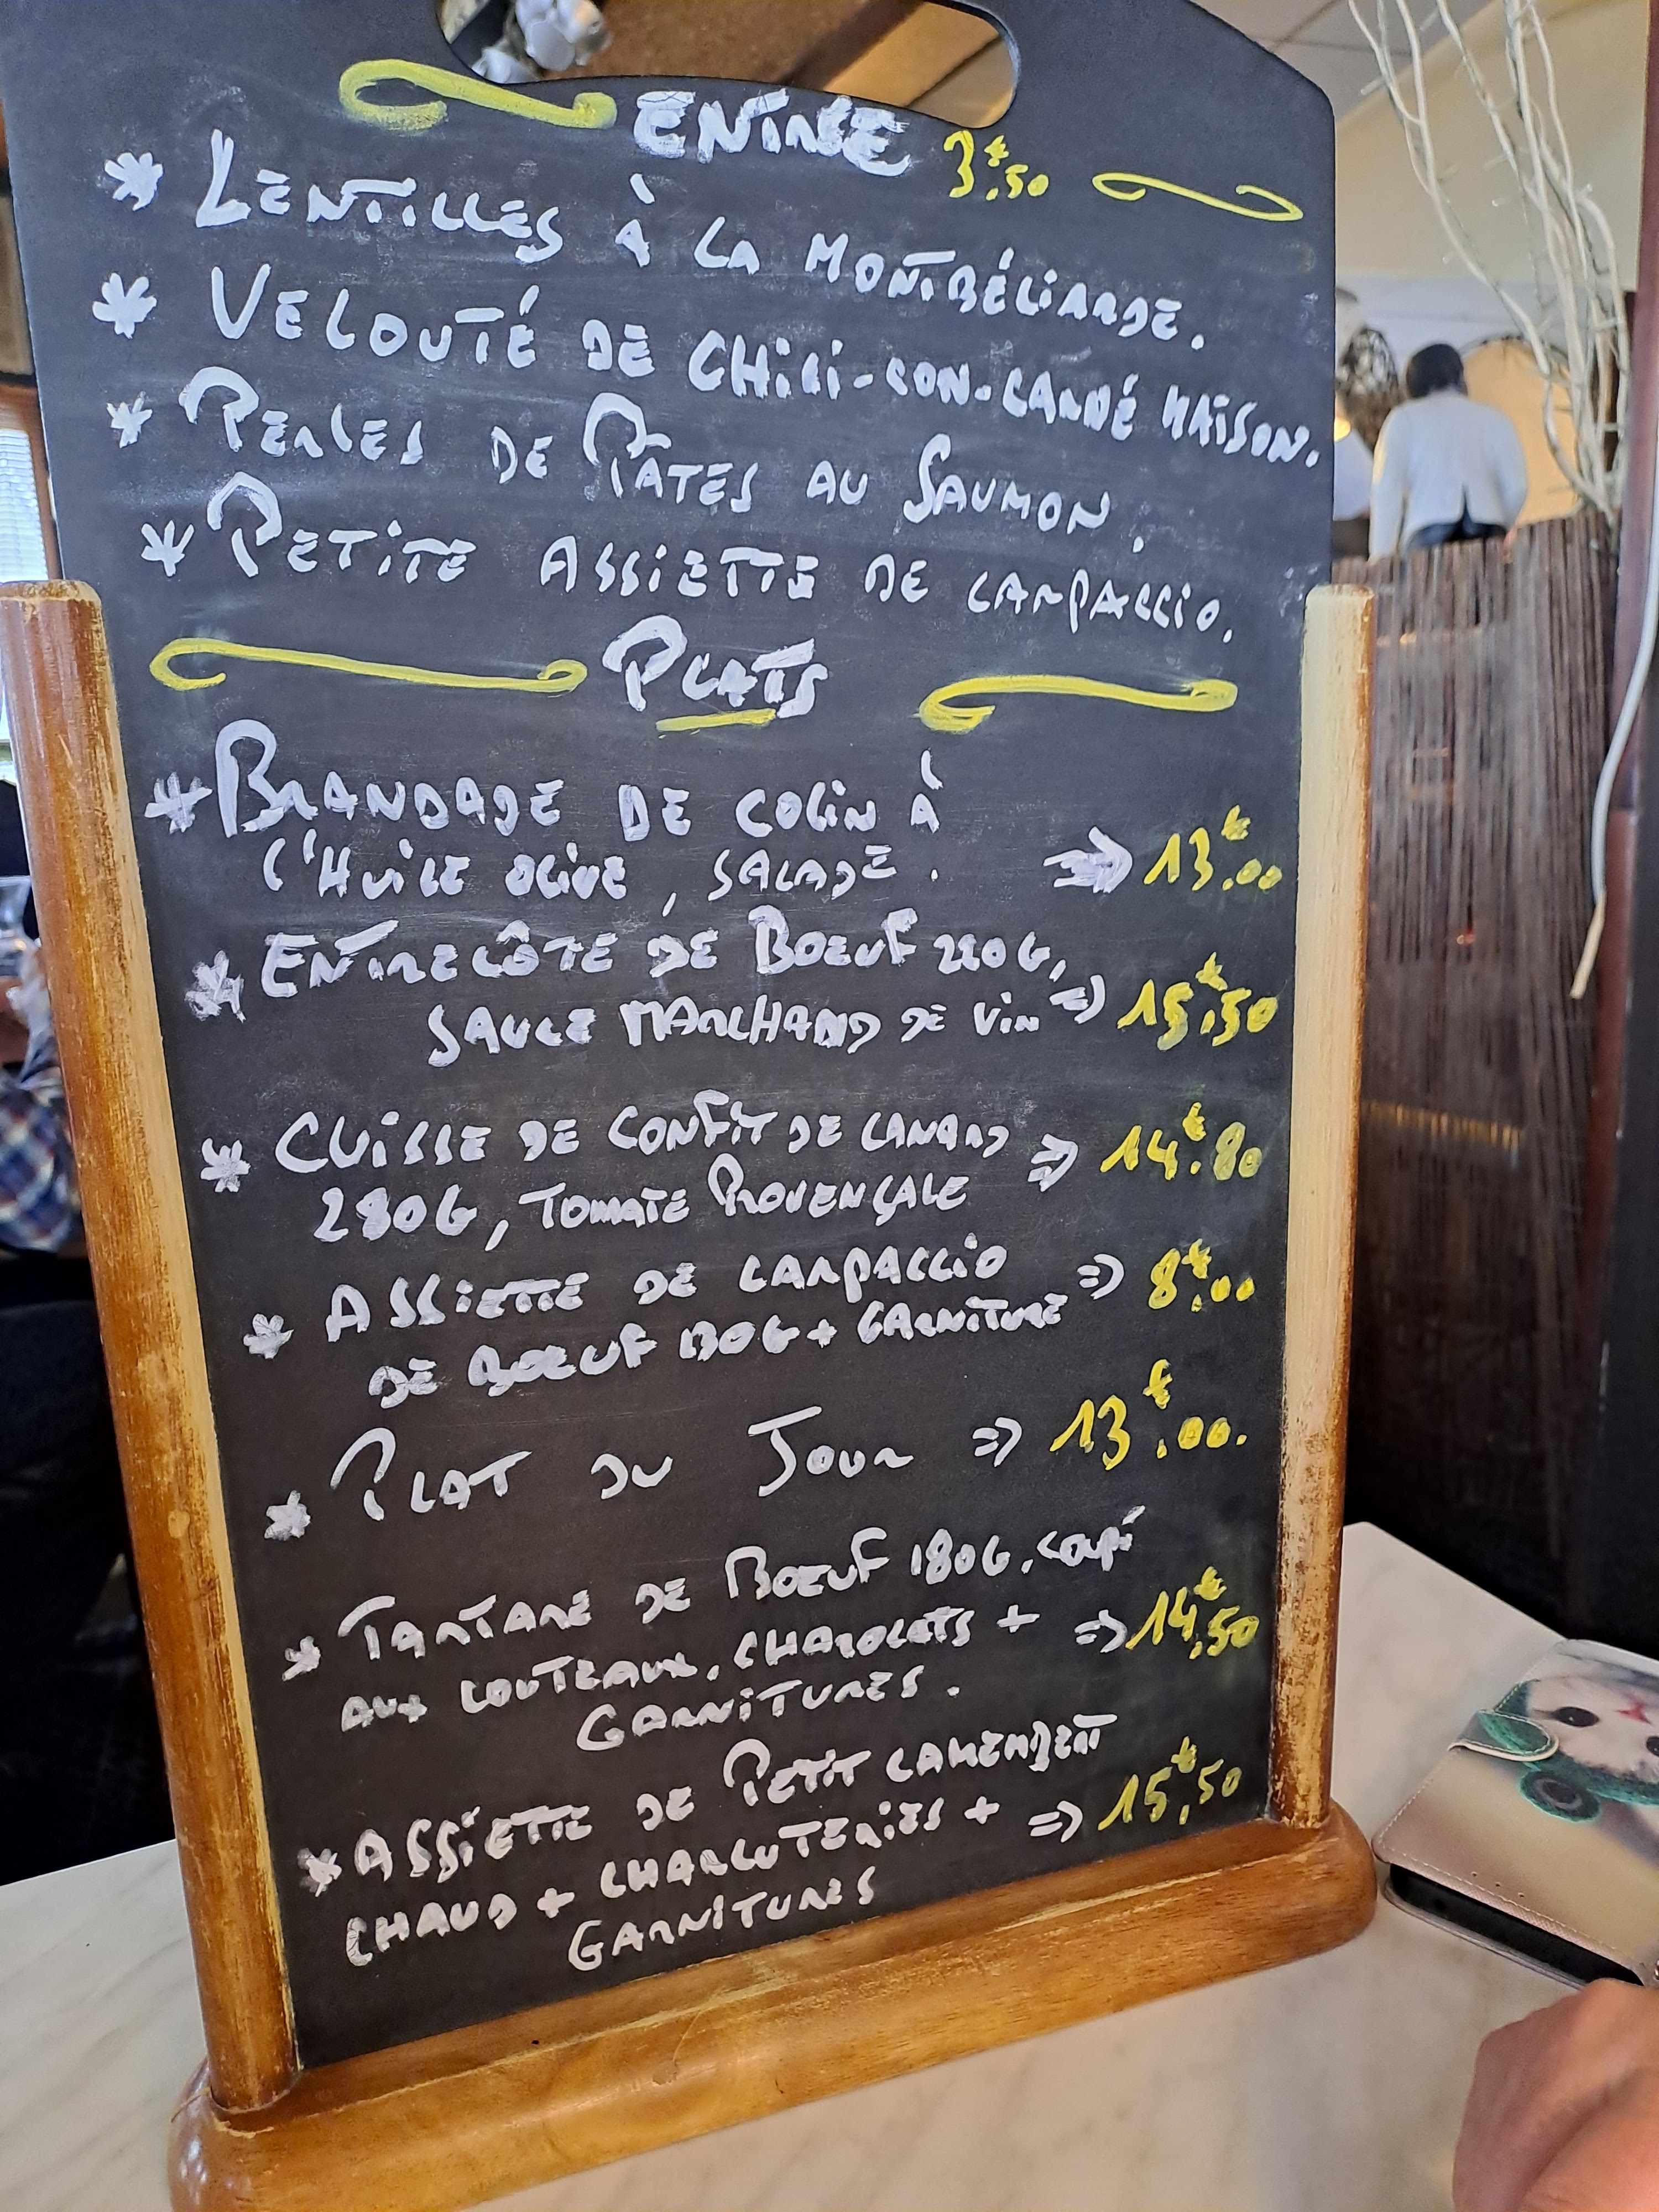 ENTRÉE 3€.50
* LENTILLES À LA MONTBÉLIARDE.
* VELOUTÉ DE CHILI-CON-CARNÉ MAISON.
* PERLES DE PÂTES AU SAUMON.
* PETITE ASSIETTE DE CARPACCIO.
PLATS
* BRANDADE DE COLIN À
L'HUILE OLIVE, SALADE. ⇒ 13€.00
* ENTRECÔTE DE BOEUF 220G,
SAUCE MARCHAND DE VIN ⇒ 15€.50
* CUISSE DE CONFIT DE CANARD ⇒ 14€.80
280G, TOMATE PROVENÇALE
* ASSIETTE DE CARPACCIO ⇒ 8€.00
DE BOEUF 130G + GARNITURE
* PLAT DU JOUR ⇒ 13€.00.
* TARTARE DE BOEUF 180G. COUPÉ
AUX COUTEAUX, CHAROLAIS + ⇒ 14€.50
GARNITURES.
* ASSIETTE DE PETIT CAMEMBERT
CHAUD + CHARCUTERIES + ⇒ 15€.50
GARNITURES